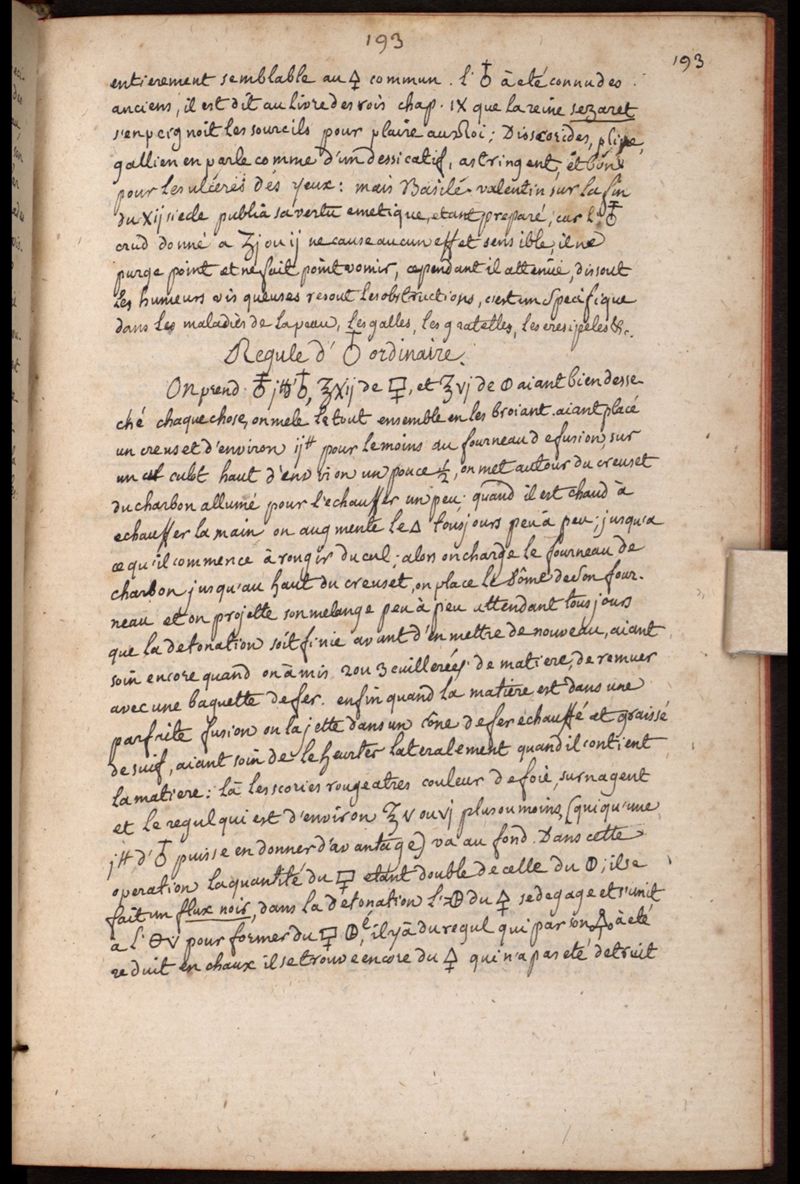 193
193
entierement semblable au 🜍 commun. l'♁ à eté connu des
anciens, il est dit au livre des rois chap. IX que la reine sezaret
s'en peignoit les sourcils pour plaire au Roi; Dioscorides, pline,
gallien en parle comme d'un dessicatif, astringent, et bon
pour les ulceres des yeux: mais Basile valentin sur la fin
du XIJ siecle publia sa vertu emetique, etant preparé, car l'♁
crud donné a ʒj ou ij ne cause aucun effet sensible, il ne
purge point et ne fait point vomir, cependant il attenüe, dissout
les humeurs visqueuses resout les obstructions, c'est un specifique
dans les maladies de la peau, les galles, les gratelles, les eresipeles &c.
Regule d'♁ ordinaire.
On prend ♁ j℔, ℥XIJ de 🜿, et ℥vj de 🜕 aiant bien desse
ché chaque chose, on mele le tout ensemble en les broiant. aiant placé
un creuset d'environ ij℔ pour le moins au fourneau de fusion, sur
un culot haut d'environ un pouce ½, on met autour du creuset
du charbon allumé pour l'echauffer un peu. quand il est chaud à
echauffer la main on augmente le 🜂 tousjours peu à peu; jusqu'a
ce qu'il commence à rougir du cul. alors on charge le fourneau de
charbon jusqu'au haut du creuset, on place le dôme de son four-
neau et on projette son melange peu à peu attendant tousjours
que la detonation soit finie avant d'en mettre de nouveau, aiant
soin encore quand on à mis 2 ou 3 cuillerées de matiere, de remuer
avec une baguette de fer. enfin quand la matiere est dans une
parfaite fusion on la jette dans un cône de fer echauffé et graissé
de suif, aiant soin de le heurter lateralement quand il contient
la matiere: là les scories rougeatres couleur de foie, surnagent
et le regul qui est d'environ ℥v ou vj plus ou moins, (quiqu'une
j℔ d'♁ puisse en donner d'avantage) va au fond. Dans cette
operation la quantité du 🜿 etant double de celle du 🜕; il se
fait un flux noir, dans la detonation l' du 🜍 se degage et s'unit
à l' pour former du 🜿 🜕é, il y à du regul qui par son à eté
reduit en chaux il se trouve encore du 🜍 qui n'a pas eté detruit